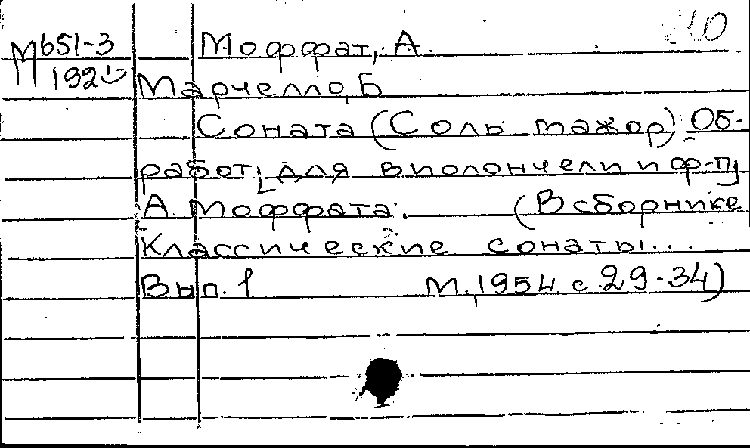 М651-3 Моффат, А.
192
Марчелло, Б
Соната (Соль мажор) Об-
работ. для виолончели и ф-п
А. Моффата. (В сборнике
Классические сонаты...
Вып. 1 М., 1954 с. 29-34)